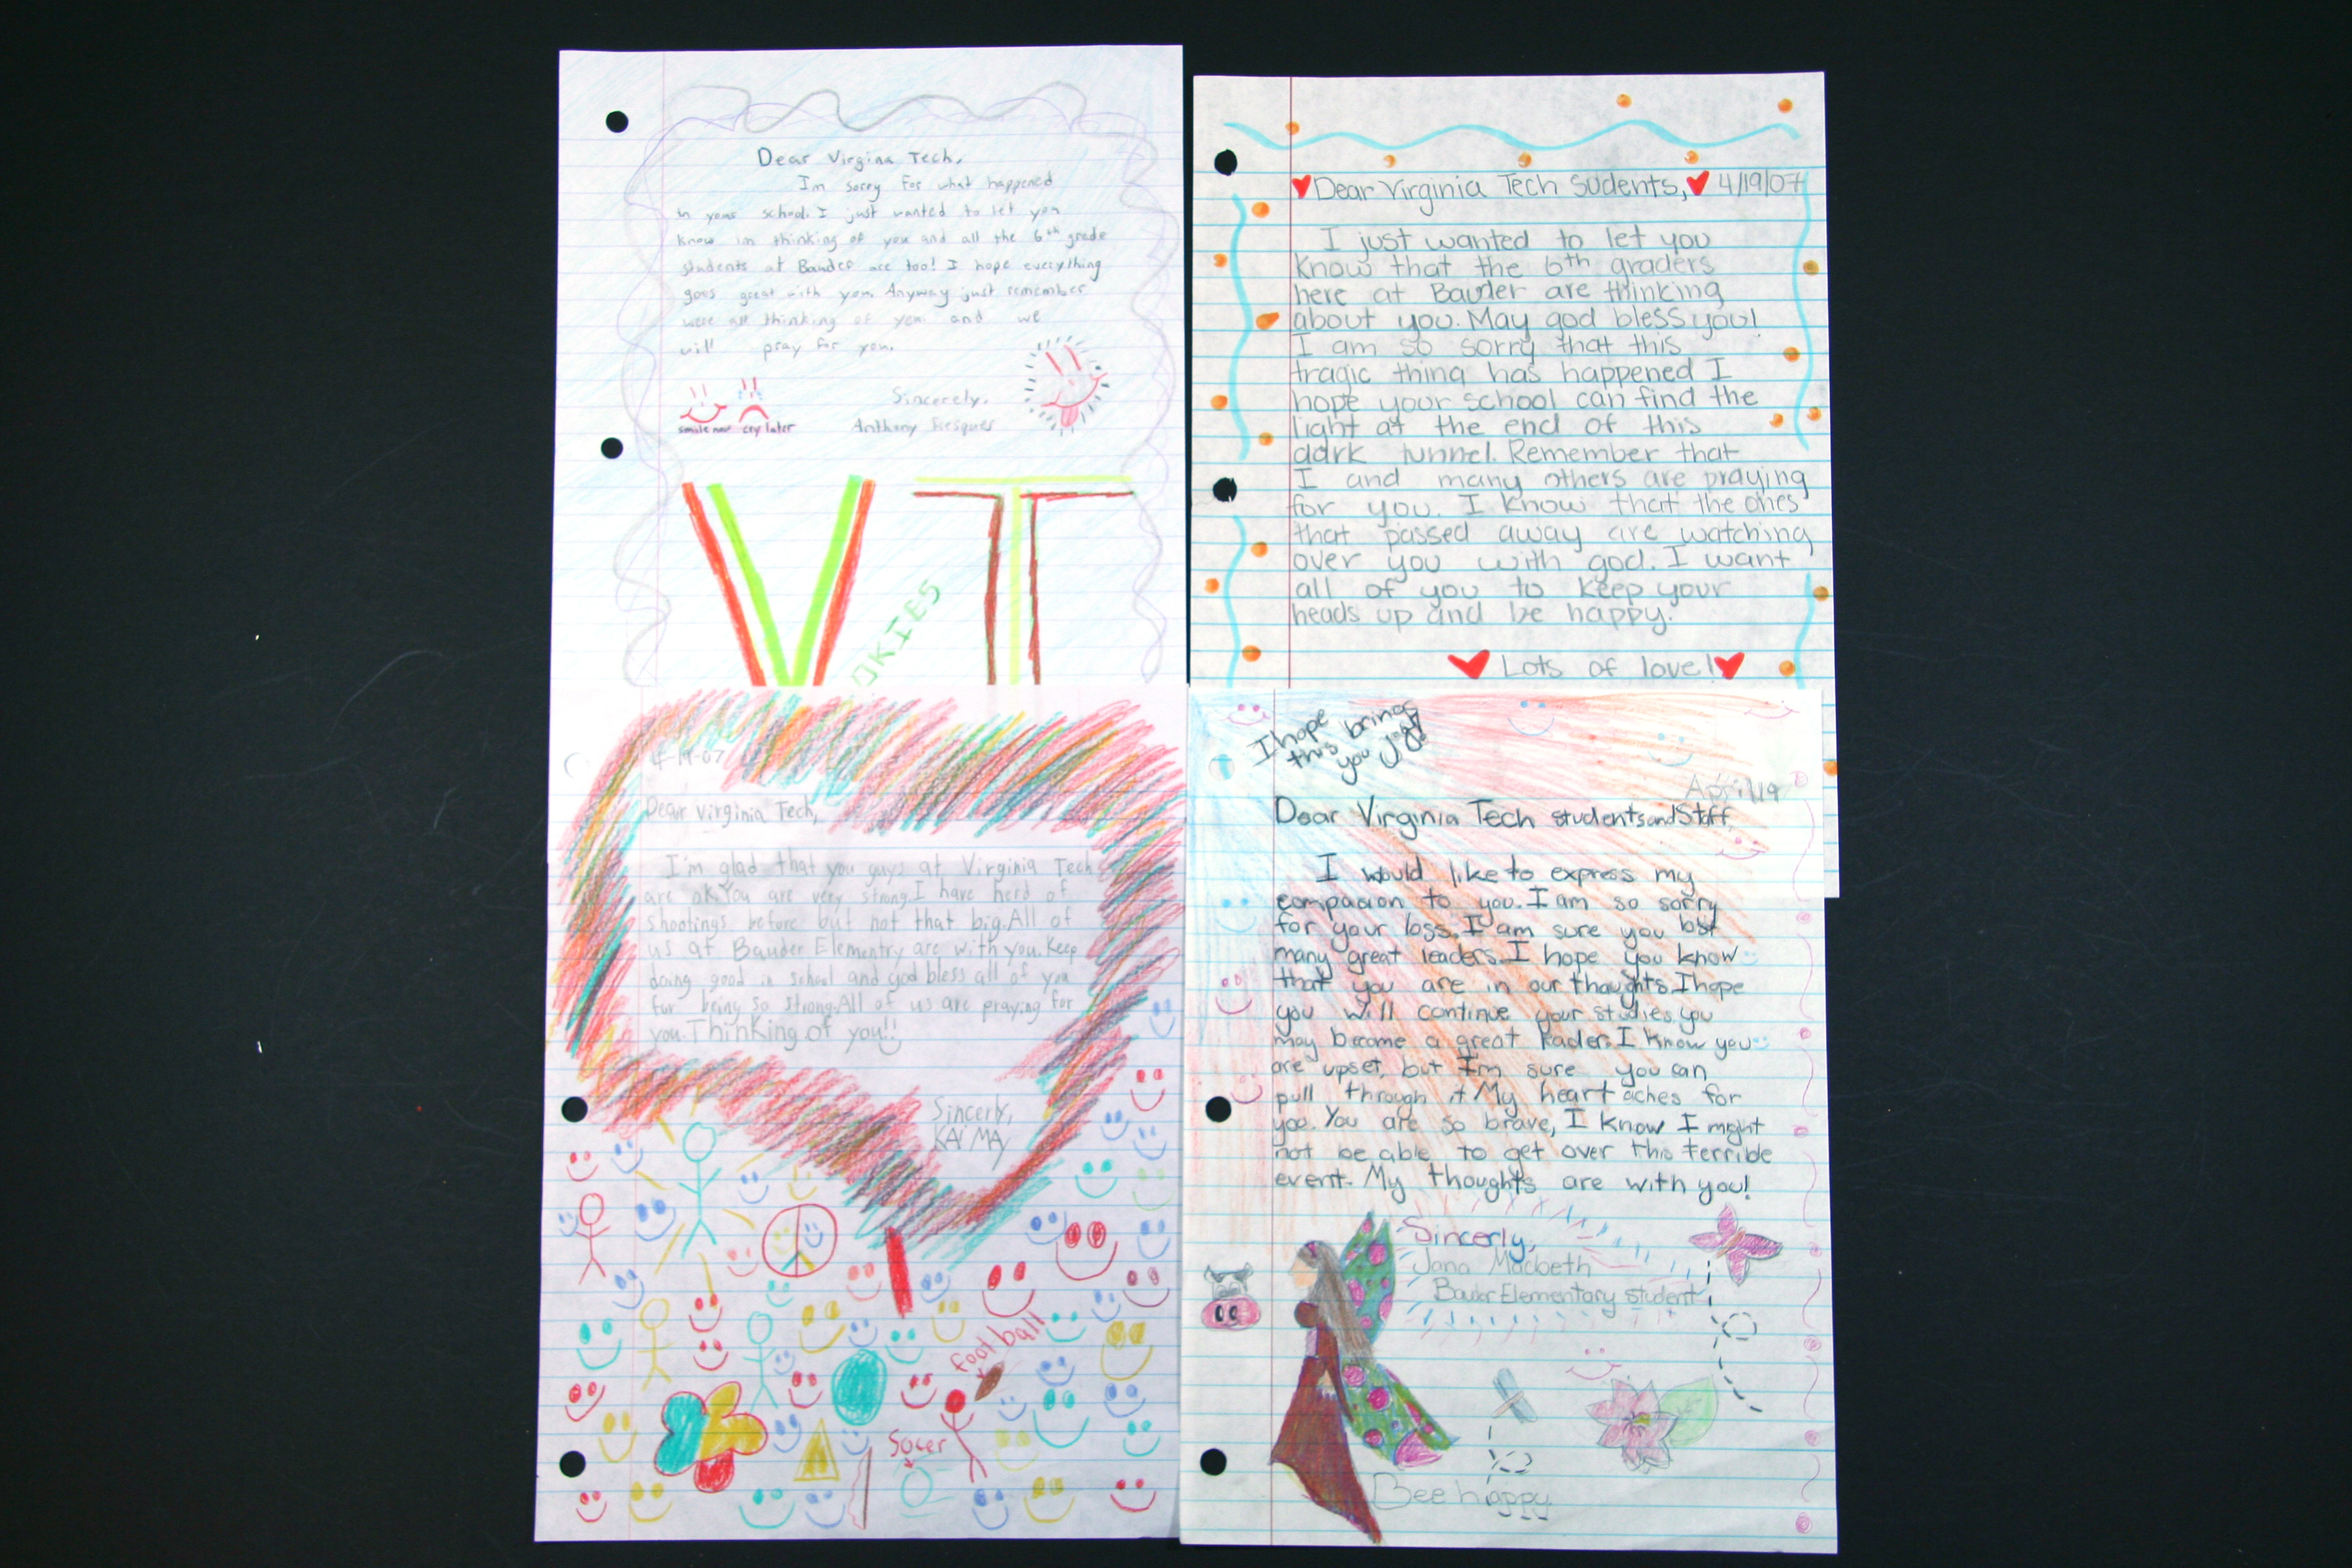 Dear Virgina Tech,
Im sorry for what happened
in your school. I just wanted to let you
know im thinking of you and all the 6th grade
students at Bauder are too! I hope everything
goes great with you. Anyway just remember
were all thinking of you and we
will pray for you.
Sincerely,
smile now cry later
Anthony
VT
OKIES
Dear Virginia Tech Sudents, 4/19/07
I just wanted to let you
know that the 6th graders
here at Bauder are thinking
about you. May god bless you!
I am so sorry that this
tragic thing has happened I
hope your school can find the
light at the end of this
dark tunnel. Remember that
I and many others are praying
for you. I know that the ones
that passed away are watching
over you with god. I want
all of you to keep your
heads up and be happy.
Lots of love!
4-19-07
Dear Virginia Tech,
I'm glad that you guys at Virginia Tech
are ok. You are very strong. I have herd of
shootings before but not that big. All of
us at Bauder Elementry are with you. Keep
doing good in school and god bless all of you
for being so strong. All of us are praying for
you. Thinking of you!!
Sincerly,
KAI MA
foot ball
Socer
I hope
this brings
you joy!
April 19
Dear Virginia Tech students and Staff,
I would like to express my
compacion to you. I am so sorry
for your loss. I am sure you lost
many great leaders. I hope you know
that you are in our thoughts. I hope
you will continue your studies, you
may become a great leader. I know you
are upset, but I'm sure you can
pull through it. My heart aches for
you. You are so brave, I know I might
not be able to get over this terrible
event. My thoughts are with you!
Sincerly,
Jana Macbeth
Bauder Elementary student
Bee happy